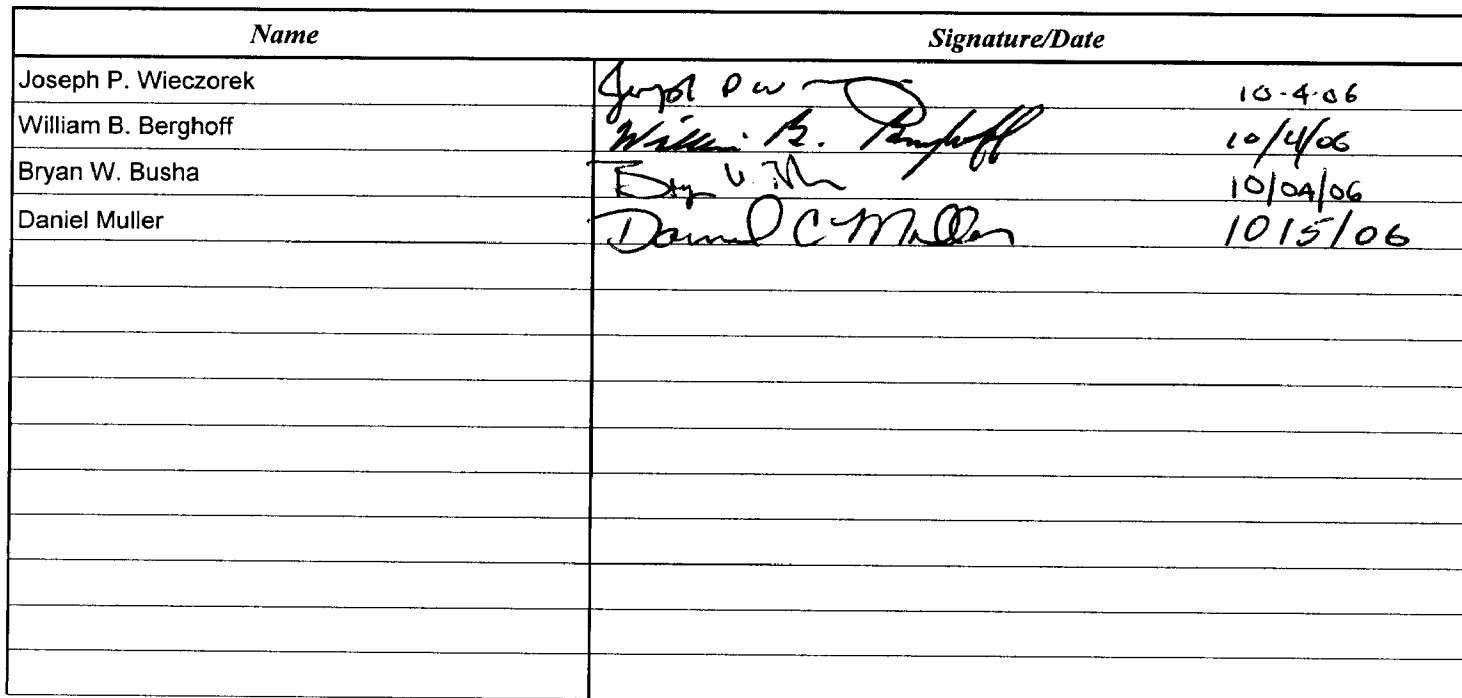 Name Signature/Date
Joseph P. Wieczorek Joseph P W 10-4-06
William B. Berghoff William B. Berghoff 10/4/06
Bryan W. Busha 10/04/06
Daniel Muller Daniel C Muller 10/5/06